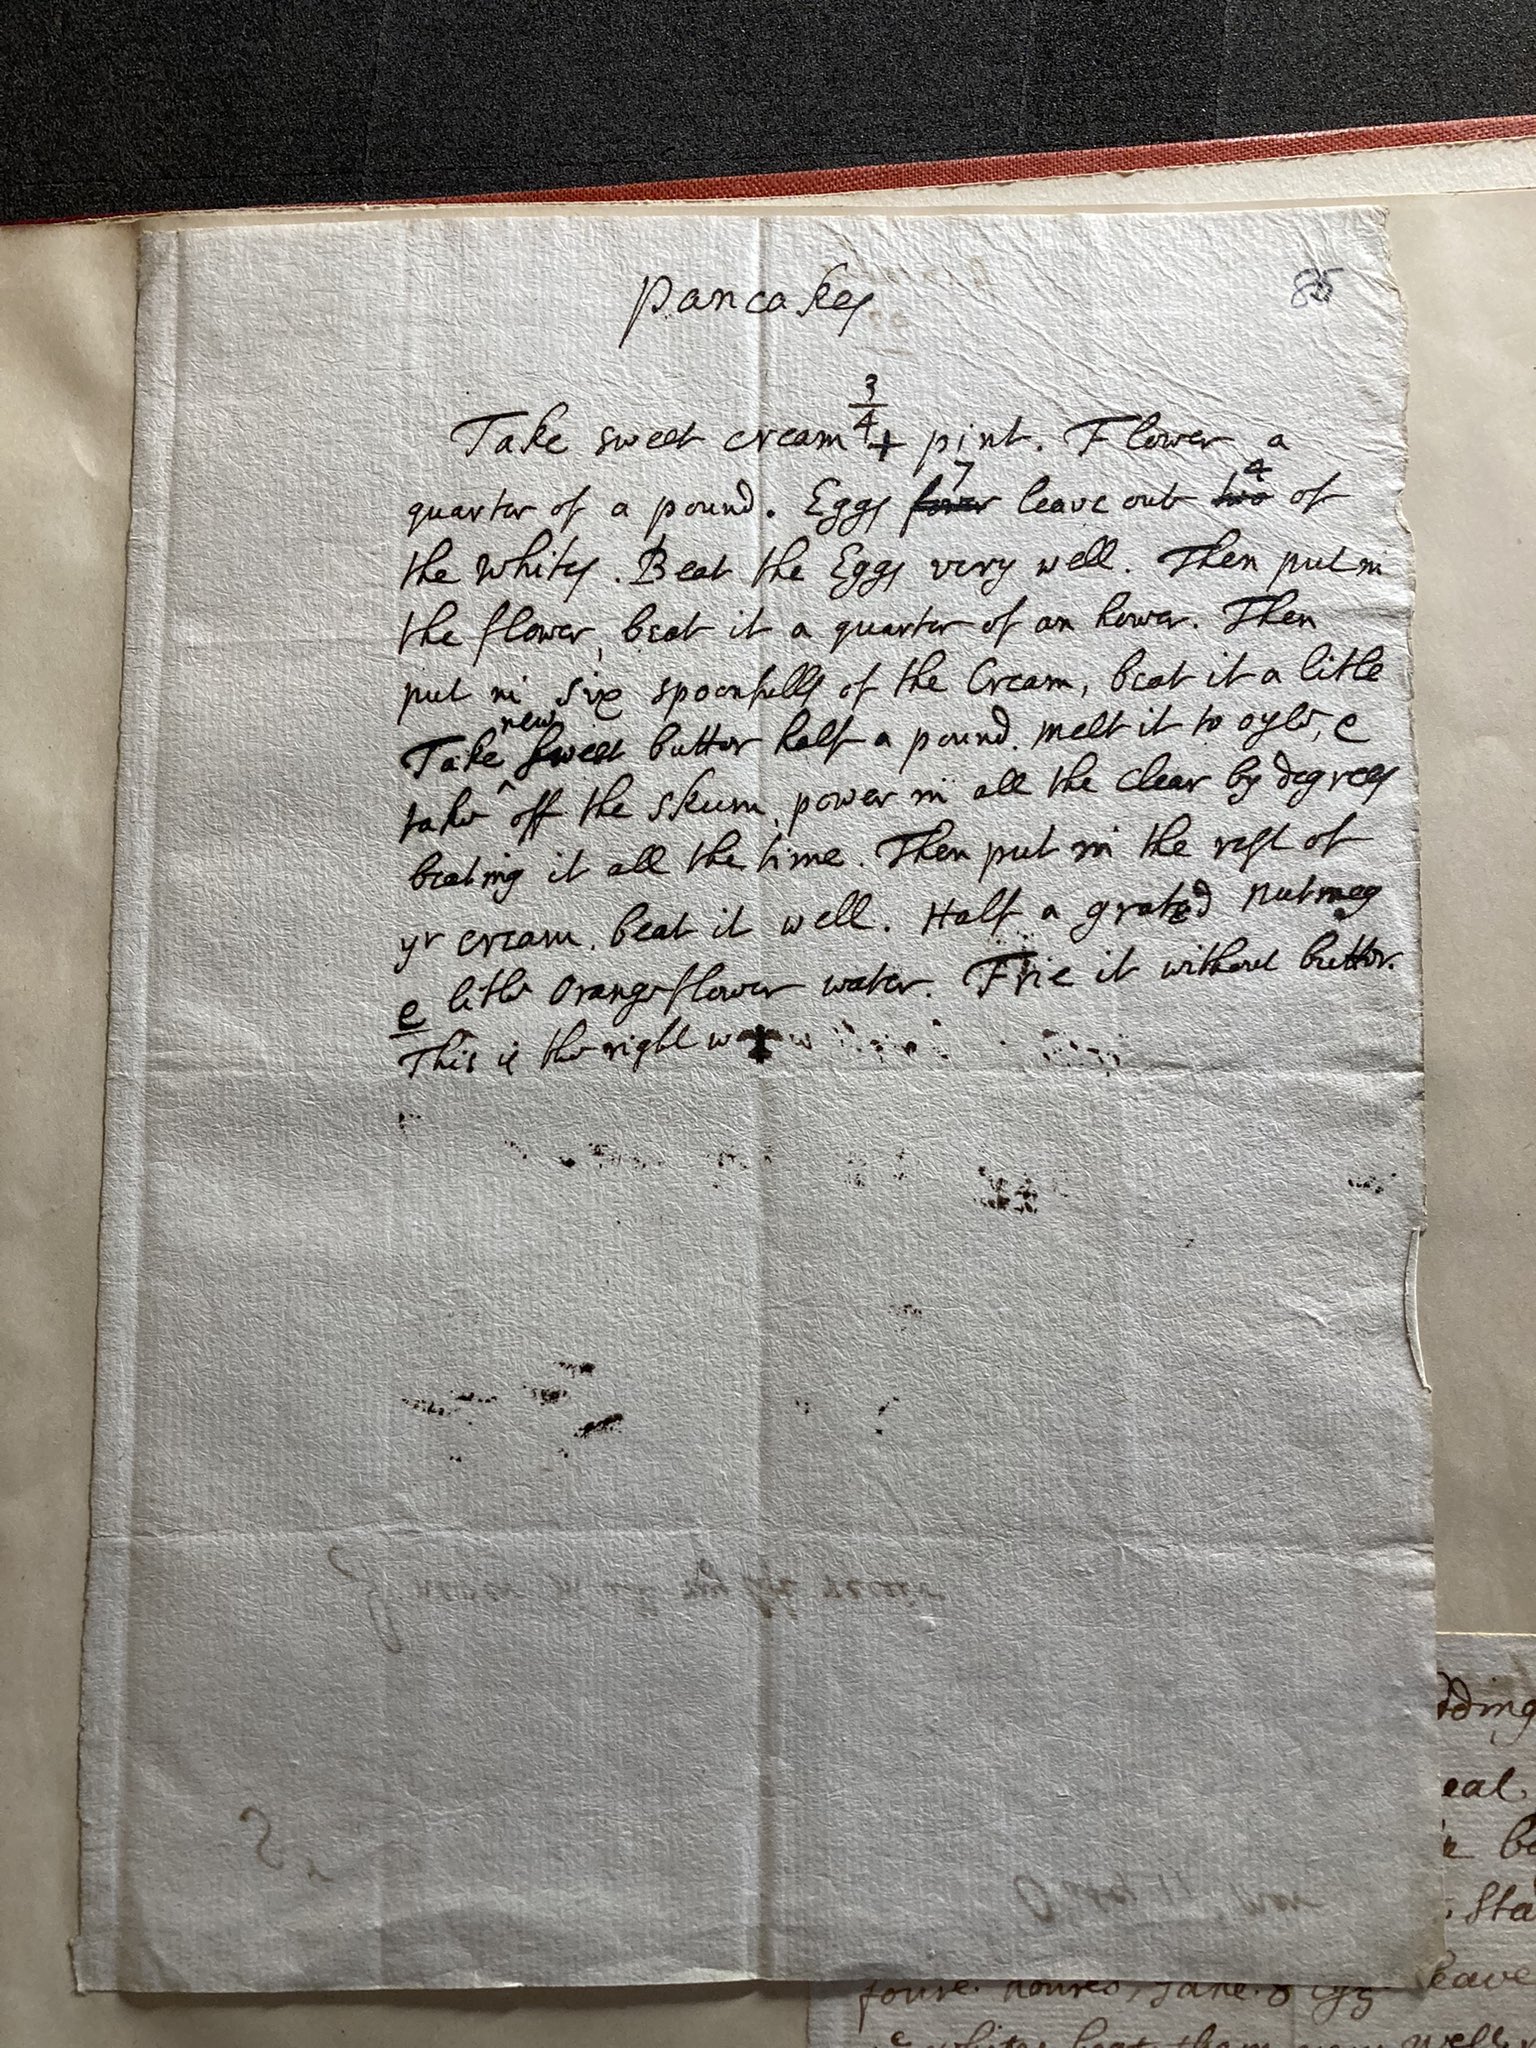 Pancakes
85
Take sweet cream 3/4 + pint. Flower a
quarter of a pound. Eggs four 7 leave out two 4 of
the whites. Beat the Eggs very well. Then put in
the flower, beat it a quarter of an hower. Then
put in six spoonfulls of the Cream, beat it a litle
Take new sweet butter half a pound. melt it to oyle, e
take off the skum, power in all the clear by degrees
beating it all the time. Then put in the rest of
yr cream. beat it well. Half a grated nutmeg
e litle Orangeflower water. Frie it without butter.
This is the right way
dding
eal.
Sta
leave
foure houres, Take 8
whites beat them very well